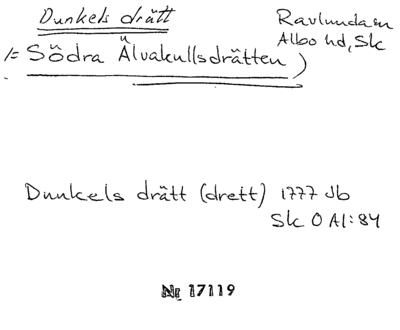 Dunkels drätt
Ravlunda sn
Albo hd, Sk
(= Södra Älvakullsdrätten)
Dunkels drätt (drett) 1777 Jb
Sk O Al:84
Nr 17119